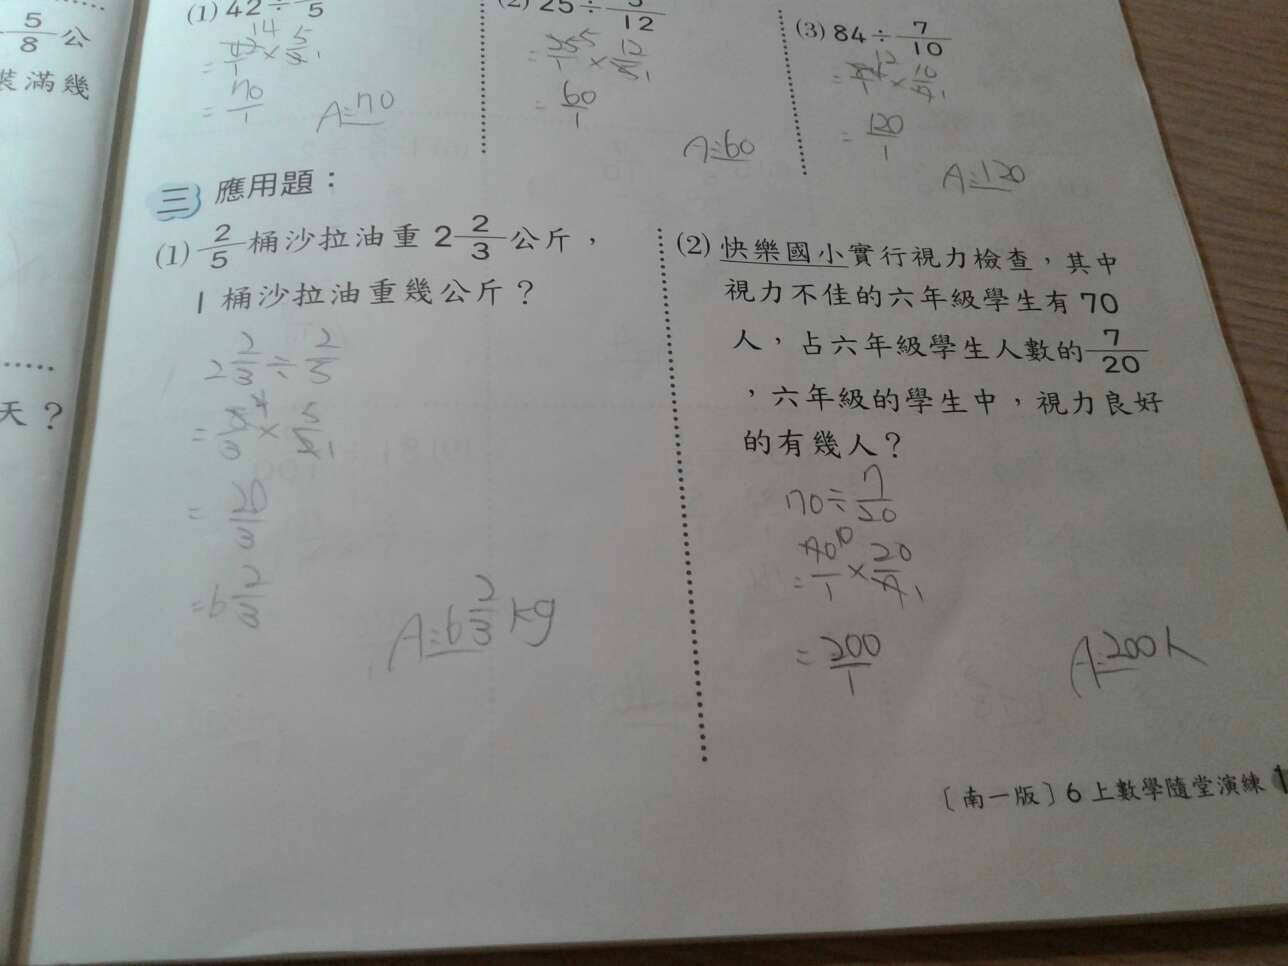 5/8 公
裝滿幾
天？
(1) 42÷ /5
= 42/1 14 × 5/3 1
= 70/1
A:70
(2) 25÷ /12
= 25/1 5 × 12/5 1
= 60/1
A:60
(3) 84÷7/10
= 84/1 12 × 10/7 1
= 120/1
A:120
三 應用題：
(1) 2/5 桶沙拉油重 2 2/3 公斤，
1 桶沙拉油重幾公斤？
2 2/3 ÷ 2/5
= 8/3 4 × 5/2 1
= 20/3
= 6 2/3
A:6 2/3 kg
(2) 快樂國小實行視力檢查，其中
視力不佳的六年級學生有 70
人，占六年級學生人數的 7/20
，六年級的學生中，視力良好
的有幾人？
70÷7/20
= 70/1 10 × 20/7 1
= 200/1
A:200人
〔南一版〕6 上數學隨堂演練 1